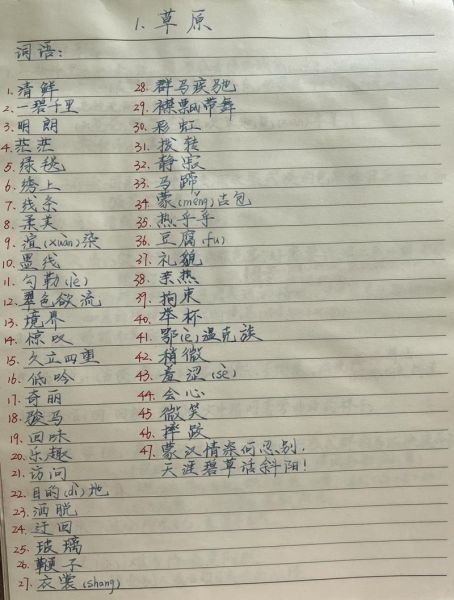 1. 草原
词语:
1. 清鲜
2. 一碧千里
3. 明朗
4. 茫茫
5. 绿毯
6. 绣上
7. 线条
8. 柔美
9. 渲(xuàn)染
10. 墨线
11. 勾勒(lè)
12. 翠色欲流
13. 境界
14. 惊叹
15. 久立四望
16. 低吟
17. 奇丽
18. 骏马
19. 回味
20. 乐趣
21. 访问
22. 目的(dì)地
23. 洒脱
24. 迂回
25. 玻璃
26. 鞭子
27. 衣裳(shang)
28. 群马疾驰
29. 襟飘带舞
30. 彩虹
31. 拨转
32. 静寂
33. 马蹄
34. 蒙(měng)古包
35. 热乎乎
36. 豆腐(fu)
37. 礼貌
38. 亲热
39. 拘束
40. 举杯
41. 鄂(è)温克族
42. 稍微
43. 羞涩(sè)
44. 会心
45. 微笑
46. 摔跤
47. 蒙汉情深何忍别,
天涯碧草话斜阳!